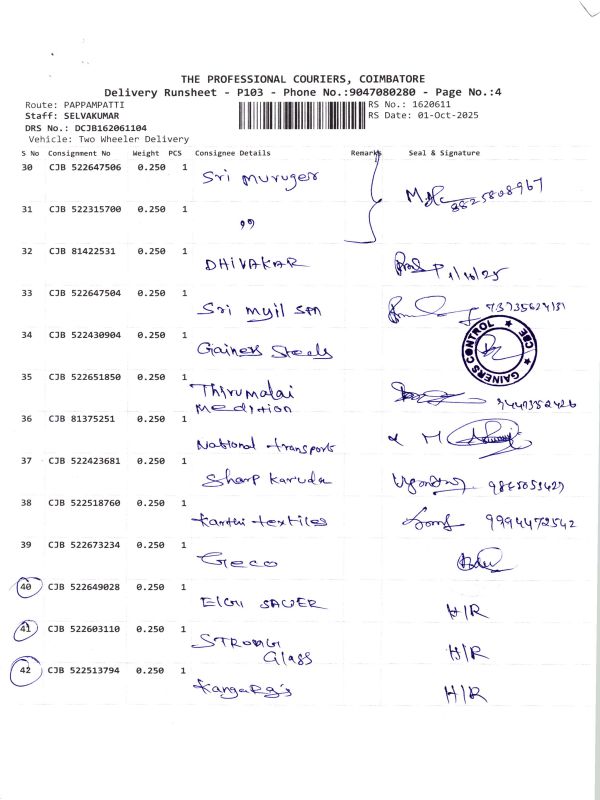 THE PROFESSIONAL COURIERS, COIMBATORE
Delivery Runsheet - P103 - Phone No.:9047080280 - Page No.:4
Route: PAPPAMPATTI RS No.: 1620611
Staff: SELVAKUMAR RS Date: 01-Oct-2025
DRS No.: DCJB162061104
Vehicle: Two Wheeler Delivery
S No Consignment No Weight PCS Consignee Details Remarks Seal & Signature
30 CJB 522647506 0.250 1 Sri Muruger 8825808967
31 CJB 522315700 0.250 1 ,,
32 CJB 81422531 0.250 1 DHIVAKAR 1/10/25
33 CJB 522647504 0.250 1 Sri myil
34 CJB 522430904 0.250 1 Gainers Steels GAINERS CONTROL ★ CBE ★
35 CJB 522651850 0.250 1 Thirumalai 9441352426
36 CJB 81375251 0.250 1 National transports
37 CJB 522423681 0.250 1 Sharp Karuda
38 CJB 522518760 0.250 1 Kanthi textiles 9994472542
39 CJB 522673234 0.250 1 Geco
40 CJB 522649028 0.250 1 ELGI SAUER H/R
41 CJB 522603110 0.250 1 STRONG Glass H/R
42 CJB 522513794 0.250 1 H/R